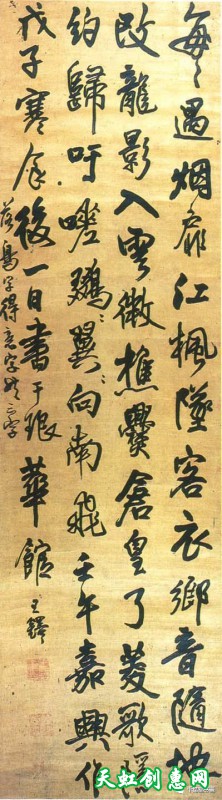 每々遇烟扉江楓墜客衣鄉音隨地
改龍影入雲微樵爨倉皇了菱歌隱
約歸吁嗟翼向南飛壬午嘉興作
戊子寒食後一日書于琅華館 王鐸
天虹创意网